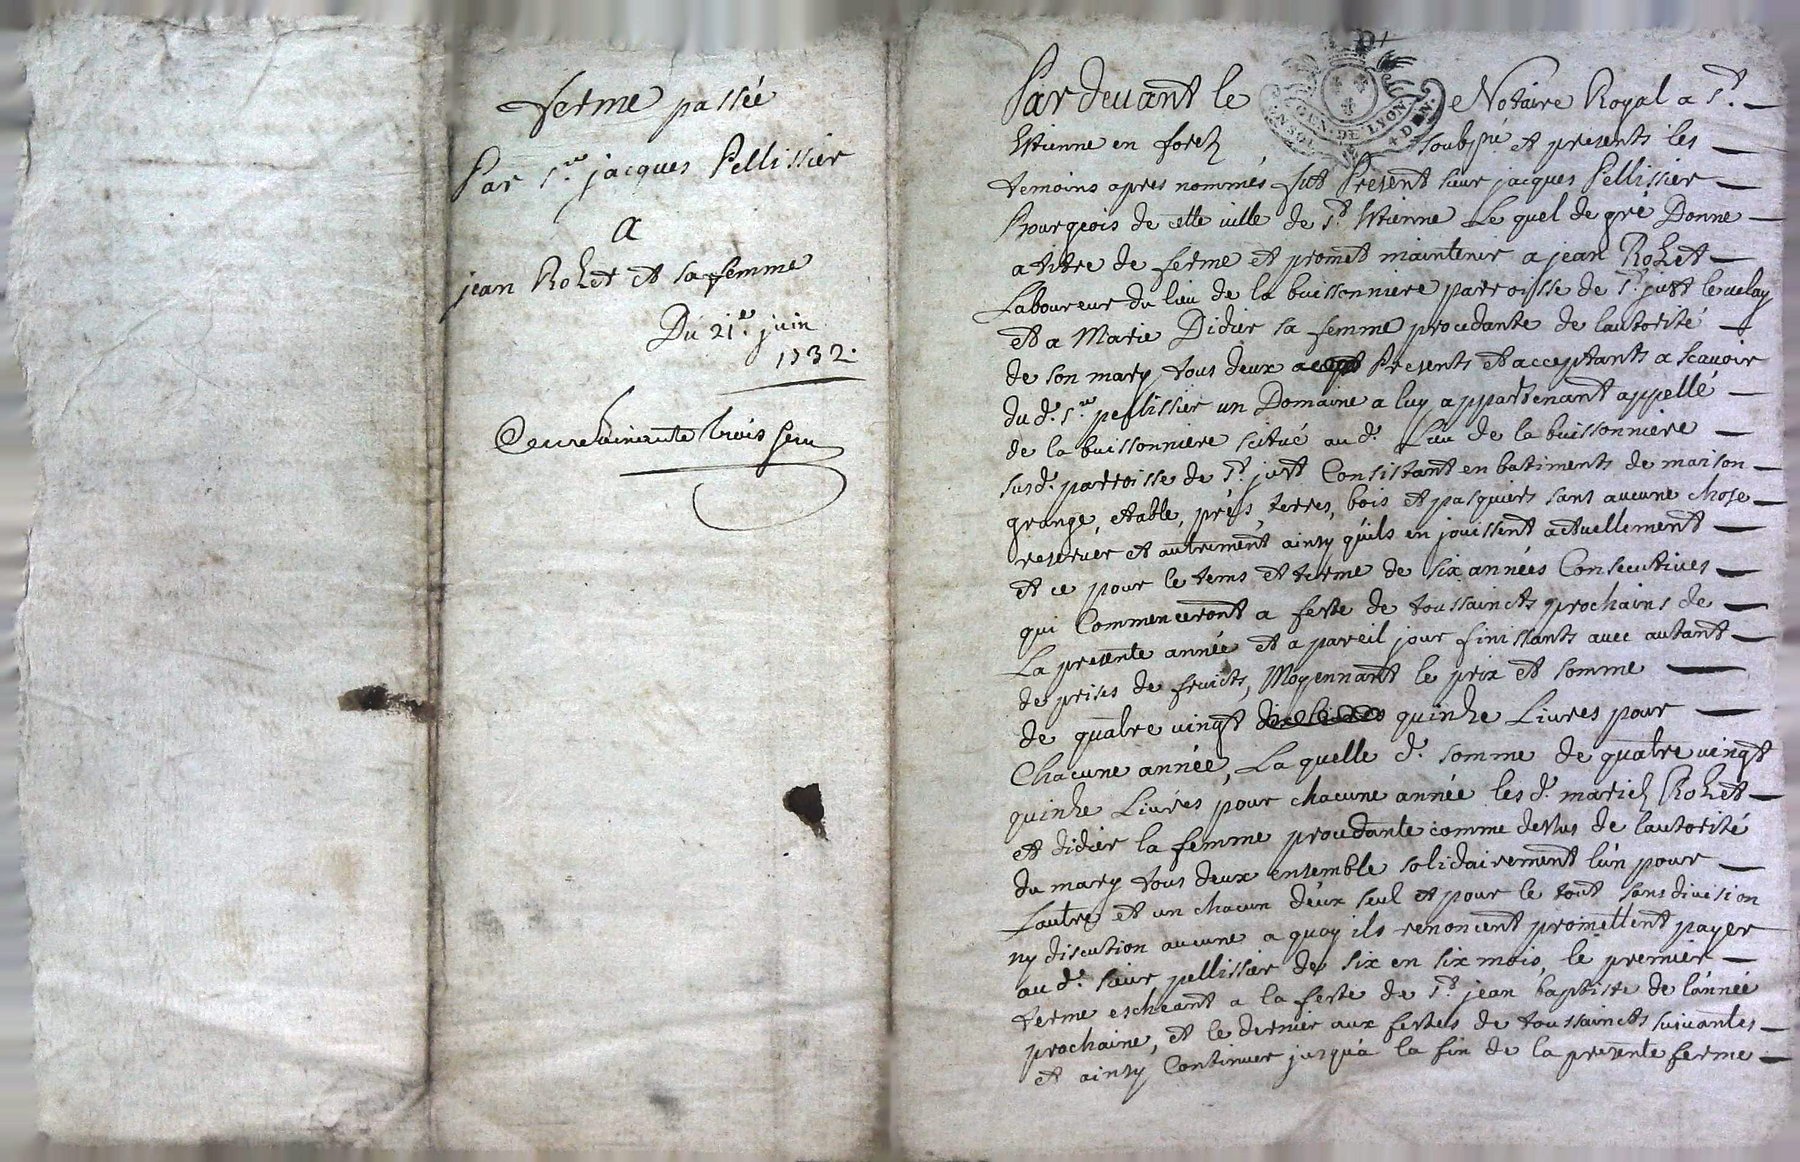 ferme passée
Par s.r jacques Pellissier
A
jean Rozet et sa femme
Du 21e. juin
1732.
trois
Par devant le Notaire Royal a St.
Etienne en forez soubsné et presents les
temoins apres nommés fut Present sieur jacques Pellissier
Bourgeois de cette ville de St. Etienne Le quel de gré Donne
a titre de ferme et promet maintenir a jean Rozet
Laboureur du lieu de la buissonniere parroisse de St. just le velay
et a Marie Didier sa femme procedante de lautorité
de son mary tous deux Presents et acceptants a scavoir
du d. s.r pellissier un Domaine a luy appartenant appellé
de la buissonniere scitué au d. Lieu de la buissonniere
susd. parroisse de St. just Consistant en batiments de maison
grange, etable, prés, terres, bois et pasquiers sans aucune chose
reserver et autrement ainsy qu'ils en jouissent actuellement
et ce pour le tems et terme de six années Consecutives
qui Commenceront a feste de toussaincts prochains de
La presente année et a pareil jour finissants avec autant
de prises de fruicts, Moyennant le prix et somme
de quatre vingt quinze Livres pour
Chacune année, La quelle d. somme de quatre vingt
quinze Livres pour chacune année les d. mariez Rozet
et didier la femme procedante comme dessus de lautorité
du mary tous deux ensemble solidairement l'un pour
Lautre et un chacun d'eux seul et pour le tout sans division
ny discution aucune a quoy ils renoncent promettent payer
au d. sieur pellissier de six en six mois, le premier
terme escheant a la feste de St. jean baptiste de l'année
prochaine, et le dernier aux festes de toussaincts suivantes
et ainsy Continuer jusqu'a la fin de la presente ferme
GEN. DE LYON